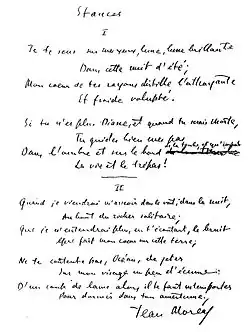 Stances
I
Je te sens sur mes yeux, lune, lune brillante
Dans cette nuit d'été;
Mon cœur de tes rayons distille l'attirante
Et froide volupté.
Si tu n'es plus Diane, et quand tu serais morte,
Tu guides bien mes pas
Dans l'ombre et sur le bord
La vie et le trépas!
II
Quand je viendrai m'asseoir dans le vent, dans la nuit,
Au bout du rocher solitaire,
Que je n'entendrai plus, en t'écoutant, le bruit
Que fait mon cœur sur cette terre,
Ne te contente pas, Océan, de jeter
Sur mon visage un peu d'écume:
D'un coup de lame alors il te faut m'emporter
Pour dormir dans ton amertume.
Jean Moréas